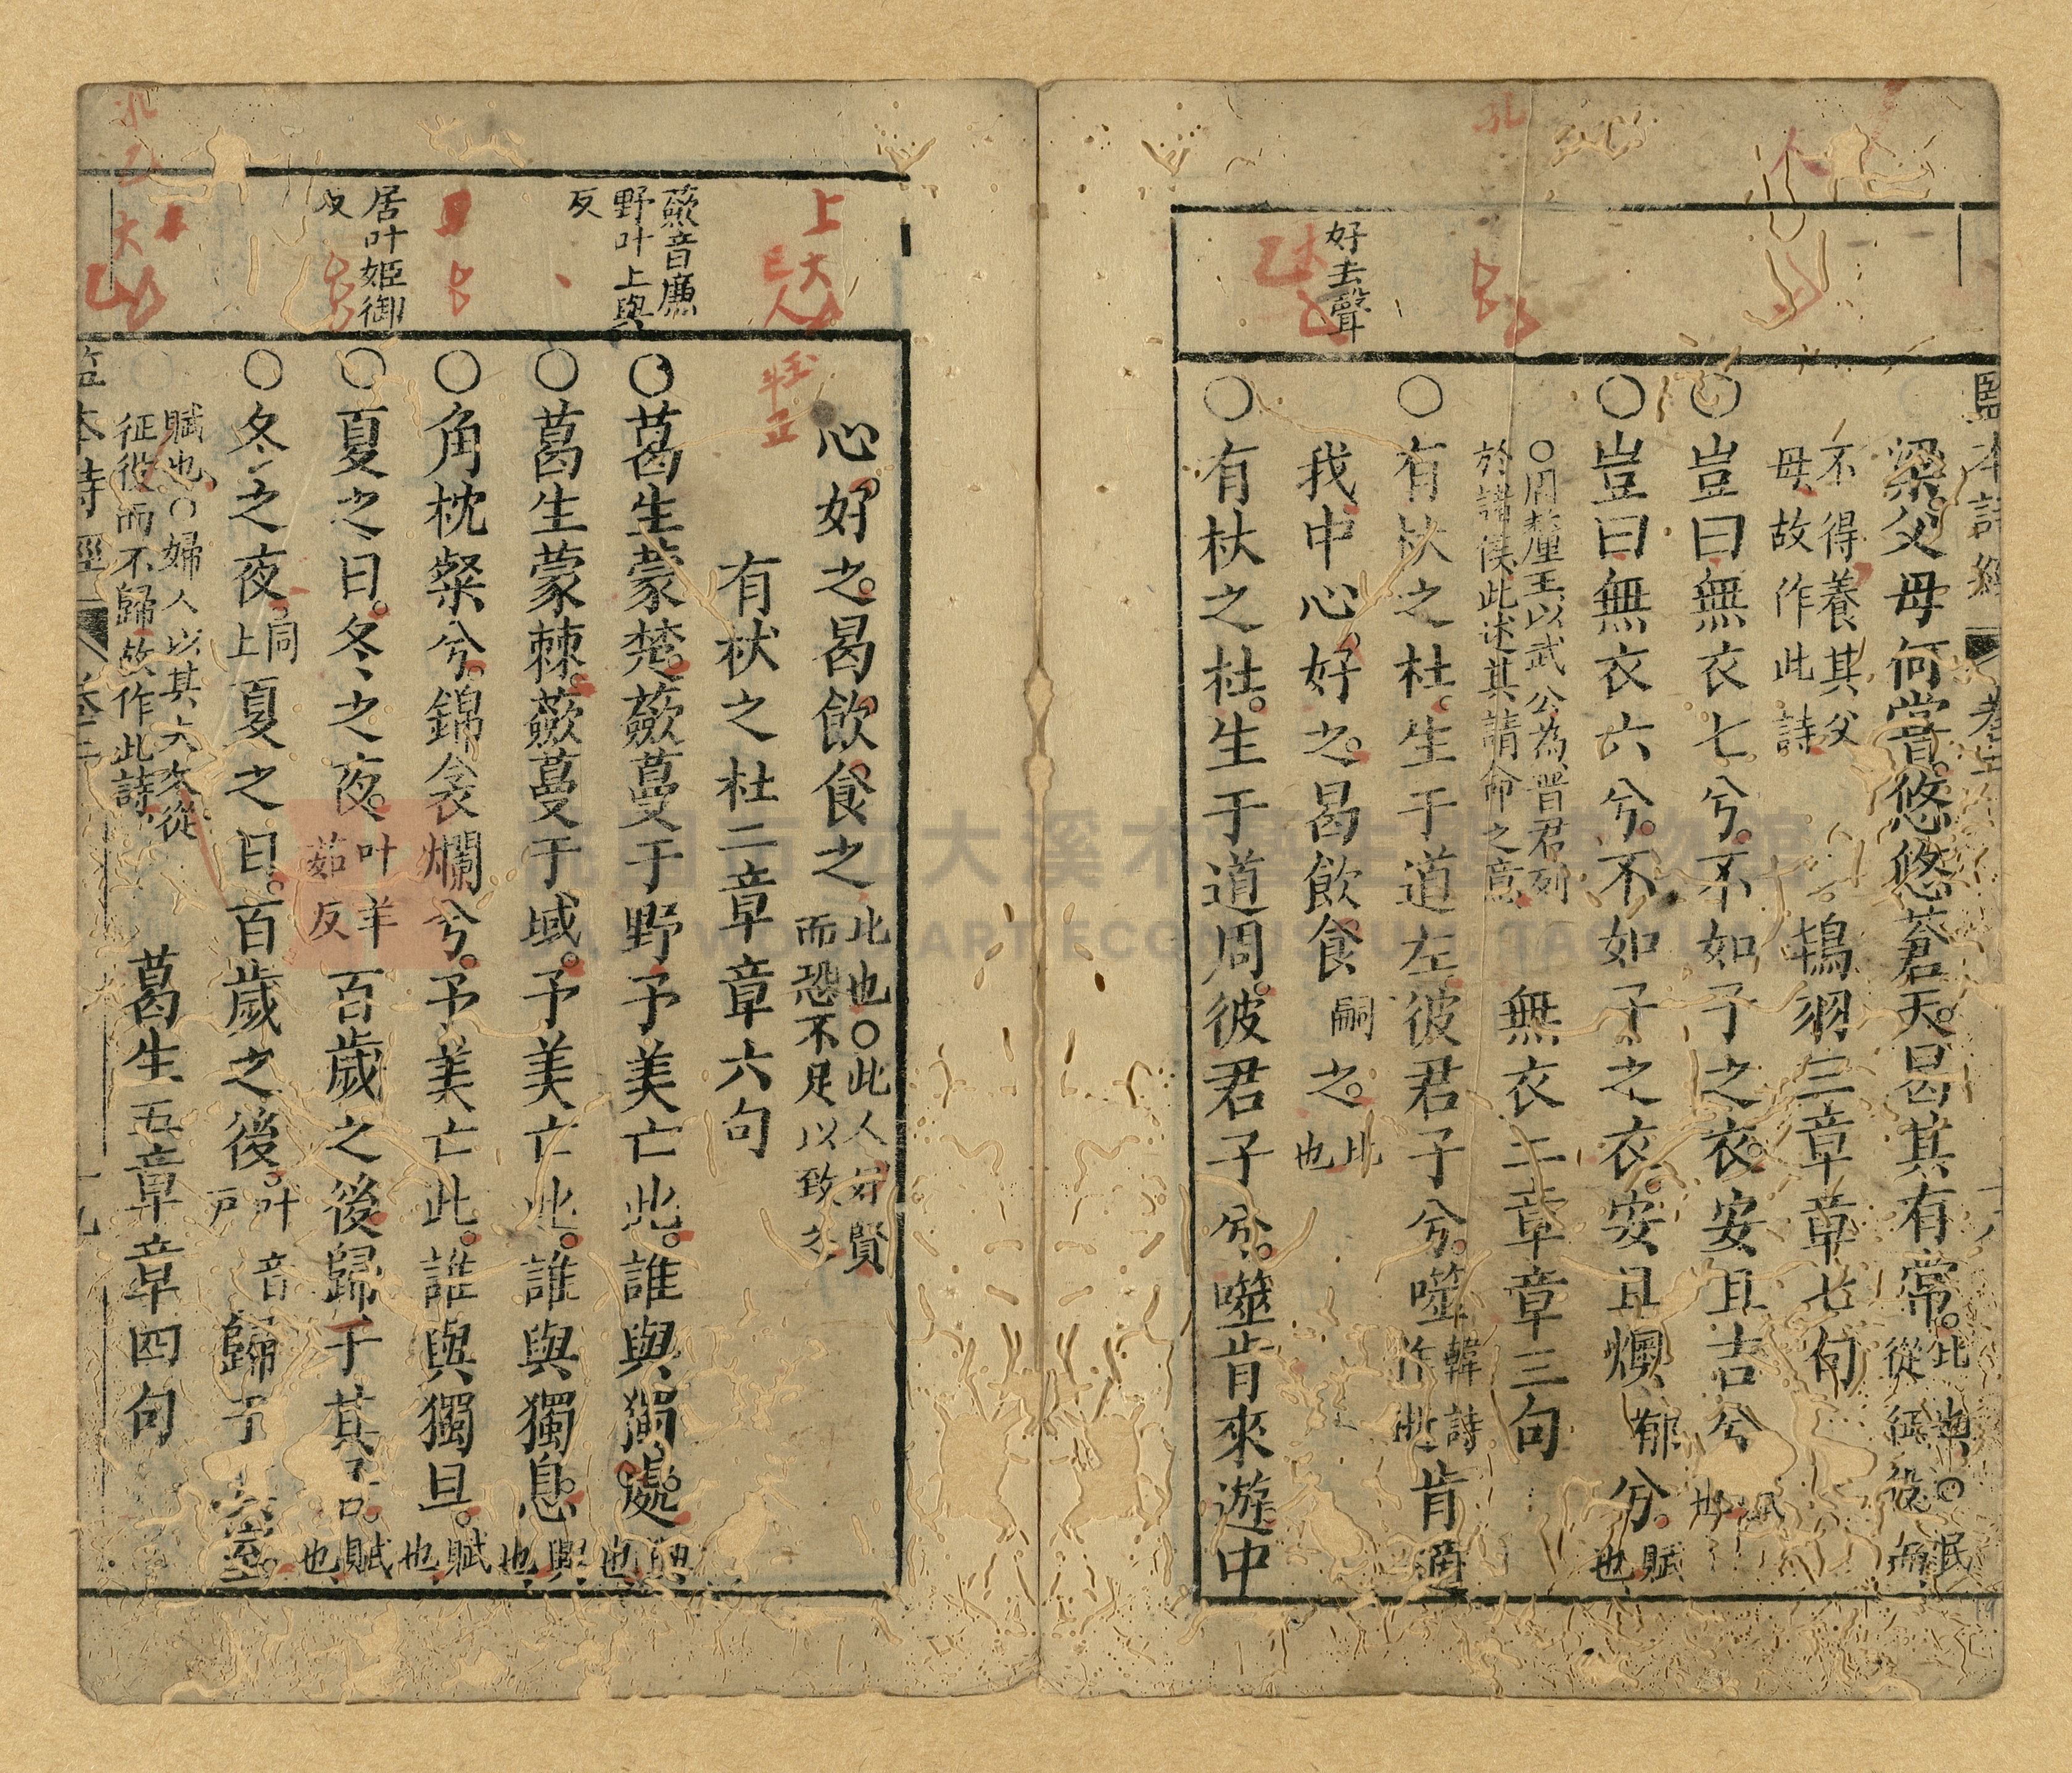 監本詩經 卷二
梁父母何嘗悠悠蒼天曷其有常比也○民
從征役而
不得養其父
母故作此詩
鴇羽三章章七句
○豈曰無衣七兮不如子之衣安且吉兮
○豈曰無衣六兮不如子之衣安且燠郁兮賦也
○周釐王以武公為晉君列
於諸侯此述其請命之意
無衣二章章三句
○有杕之杜生于道左彼君子兮噬韓詩作逝肯適
好去聲
我中心好之曷飲食嗣之比也
○有杕之杜生于道周彼君子兮噬肯來遊中
上
心好之曷飲食之比也○此人好賢
而恐不足以致之
有杕之杜二章章六句
蘞音廉
野叶上與
反
○葛生蒙楚蘞蔓于野予美亡此誰與獨處興也
○葛生蒙棘蘞蔓于域予美亡此誰與獨息興也
○角枕粲兮錦衾爛兮予美亡此誰與獨旦賦也
居叶姬御
反
○夏之日冬之夜叶羊茹反百歲之後歸于其居賦也
○冬之夜同上夏之日百歲之後叶音戶歸于其室
賦也○婦人以其夫久從
征役而不歸故作此詩
葛生五章章四句
監本詩經 卷二
桃園市立大溪木藝生態博物館
DAXI WOOD ART ECOMUSEUM, TAOYUAN